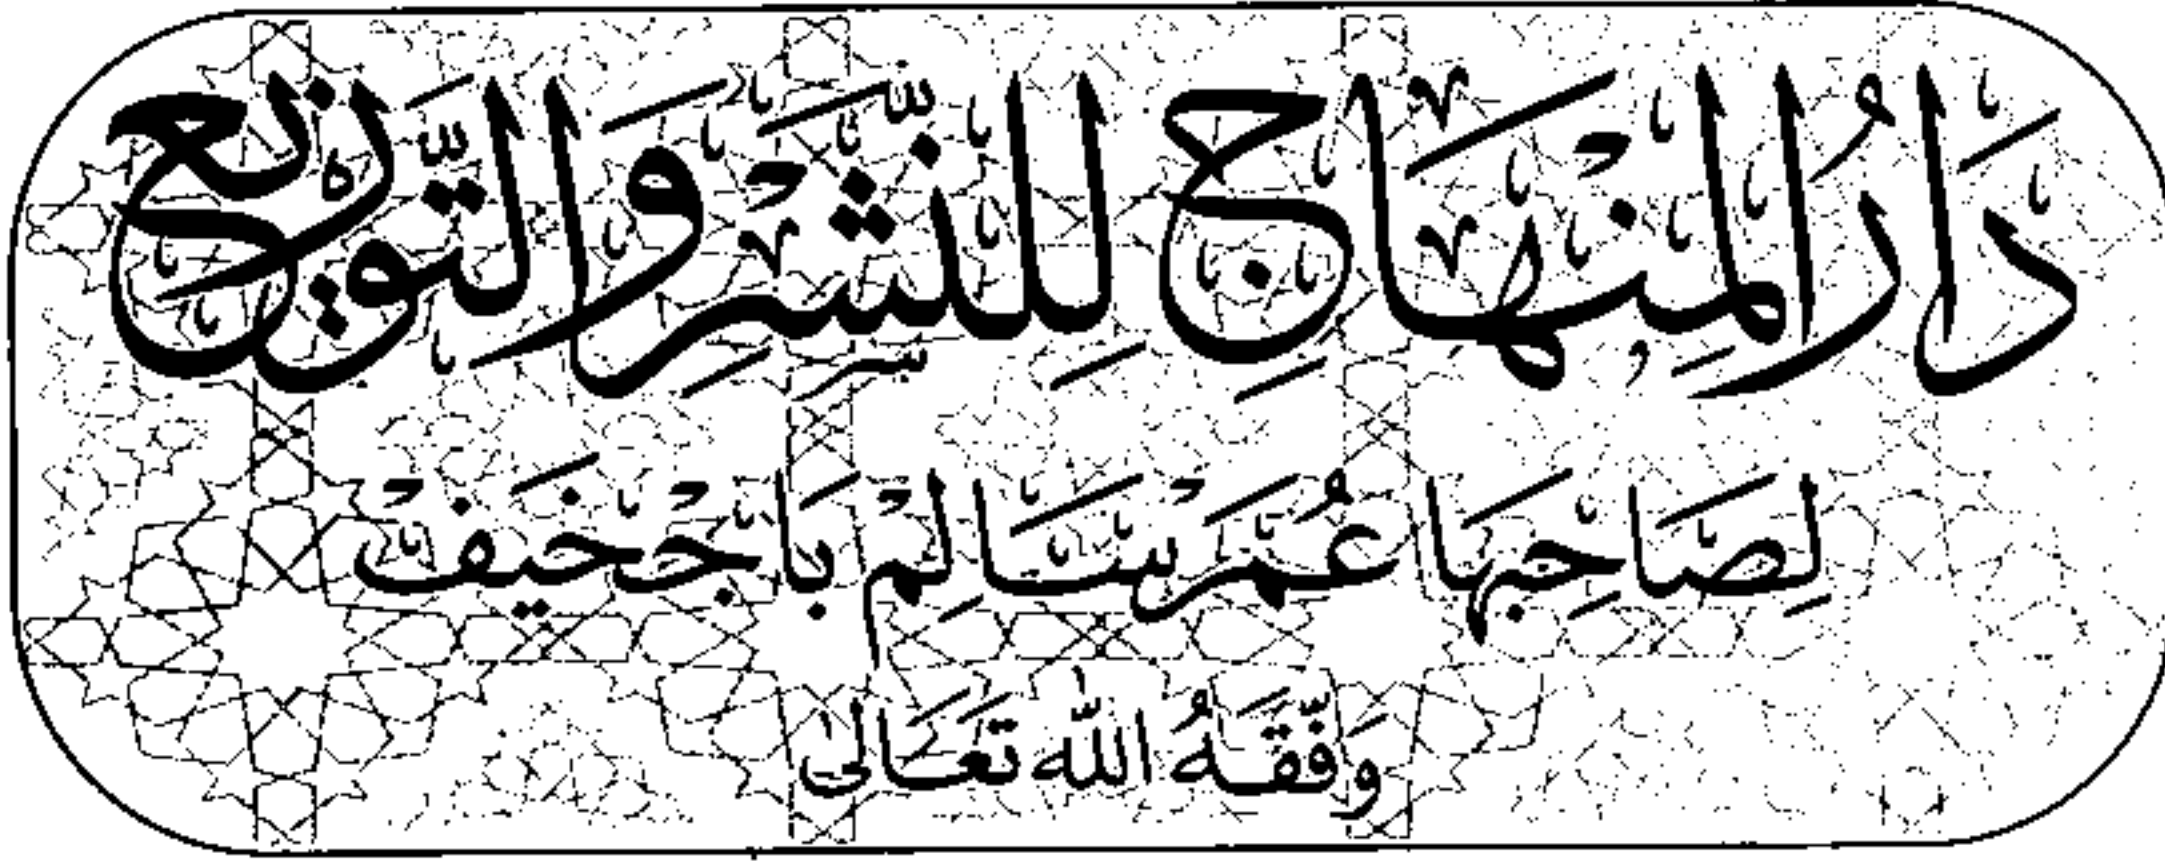 دَارُ الْمِنْهَاجِ لِلنَّشْرِ وَالتَّوْزِيعِ
لِصَاحِبِهَا عُمَرْ سَالِمْ بَاجْخَيْفْ
وَفَّقَهُ اللّٰه تَعَالَى